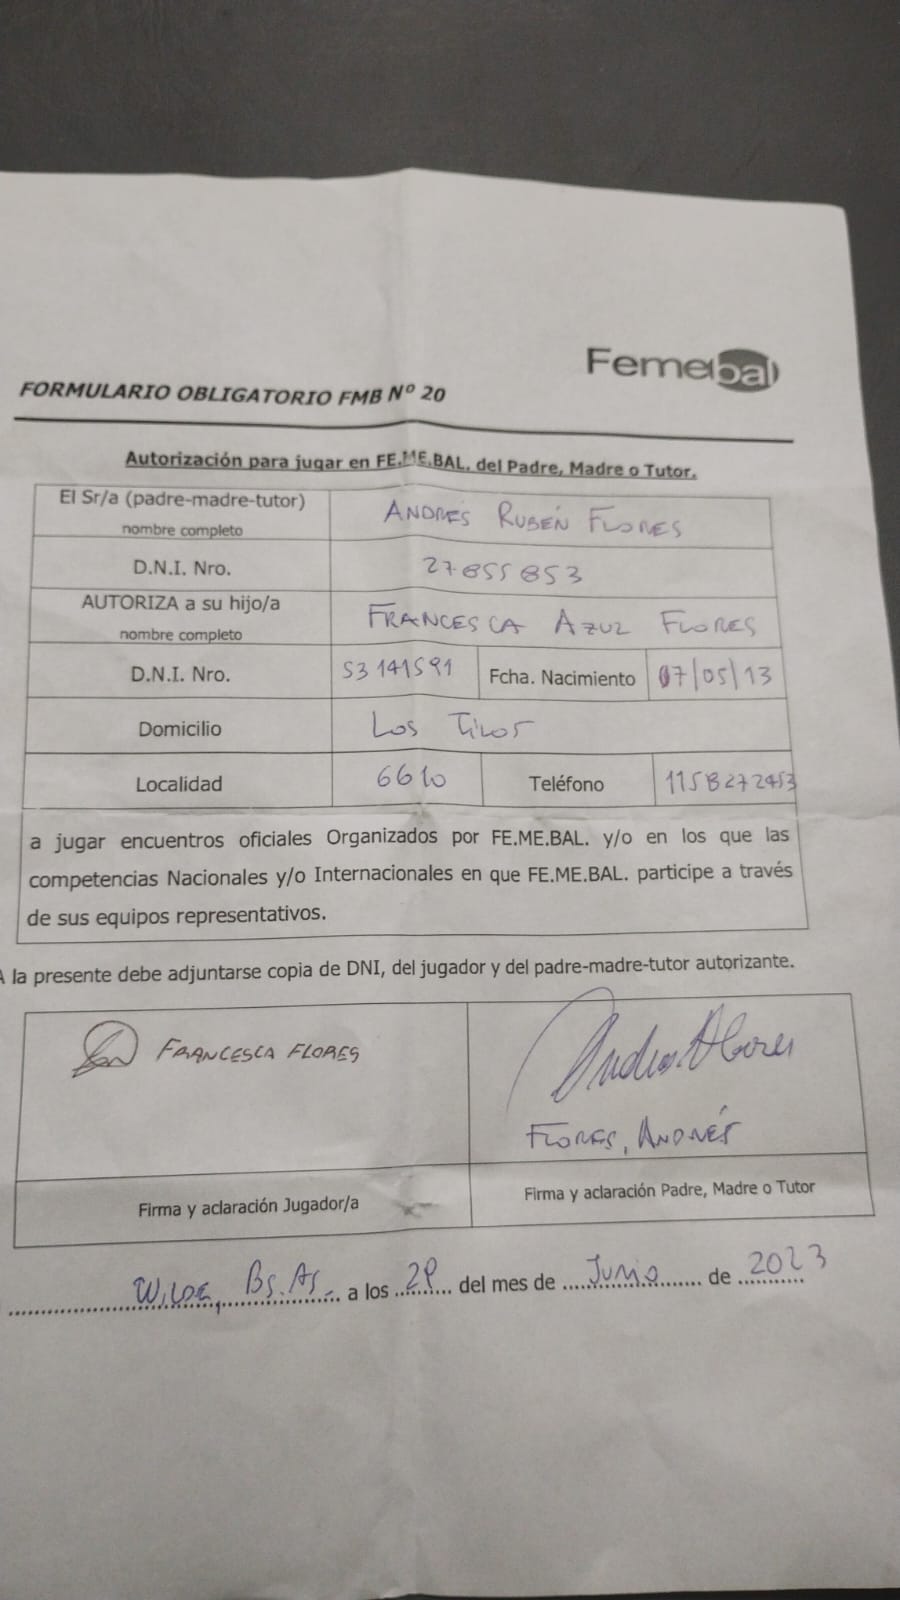 Femebal
FORMULARIO OBLIGATORIO FMB Nº 20
Autorización para jugar en FE.ME.BAL. del Padre, Madre o Tutor.
El Sr/a (padre-madre-tutor) nombre completo ANDRÉS RUBÉN FLORES
D.N.I. Nro. 27855853
AUTORIZA a su hijo/a nombre completo FRANCESCA AZUL FLORES
D.N.I. Nro. 53141591 Fcha. Nacimiento 07/05/13
Domicilio Los Tilos
Localidad 6610 Teléfono
a jugar encuentros oficiales Organizados por FE.ME.BAL. y/o en los que las
competencias Nacionales y/o Internacionales en que FE.ME.BAL. participe a través
de sus equipos representativos.
A la presente debe adjuntarse copia de DNI, del jugador y del padre-madre-tutor autorizante.
FRANCESCA FLORES
Andres Flores
FLORES, ANDRÉS
Firma y aclaración Jugador/a
Firma y aclaración Padre, Madre o Tutor
WILDE, BS.AS. a los 29 del mes de JUNIO de 2023